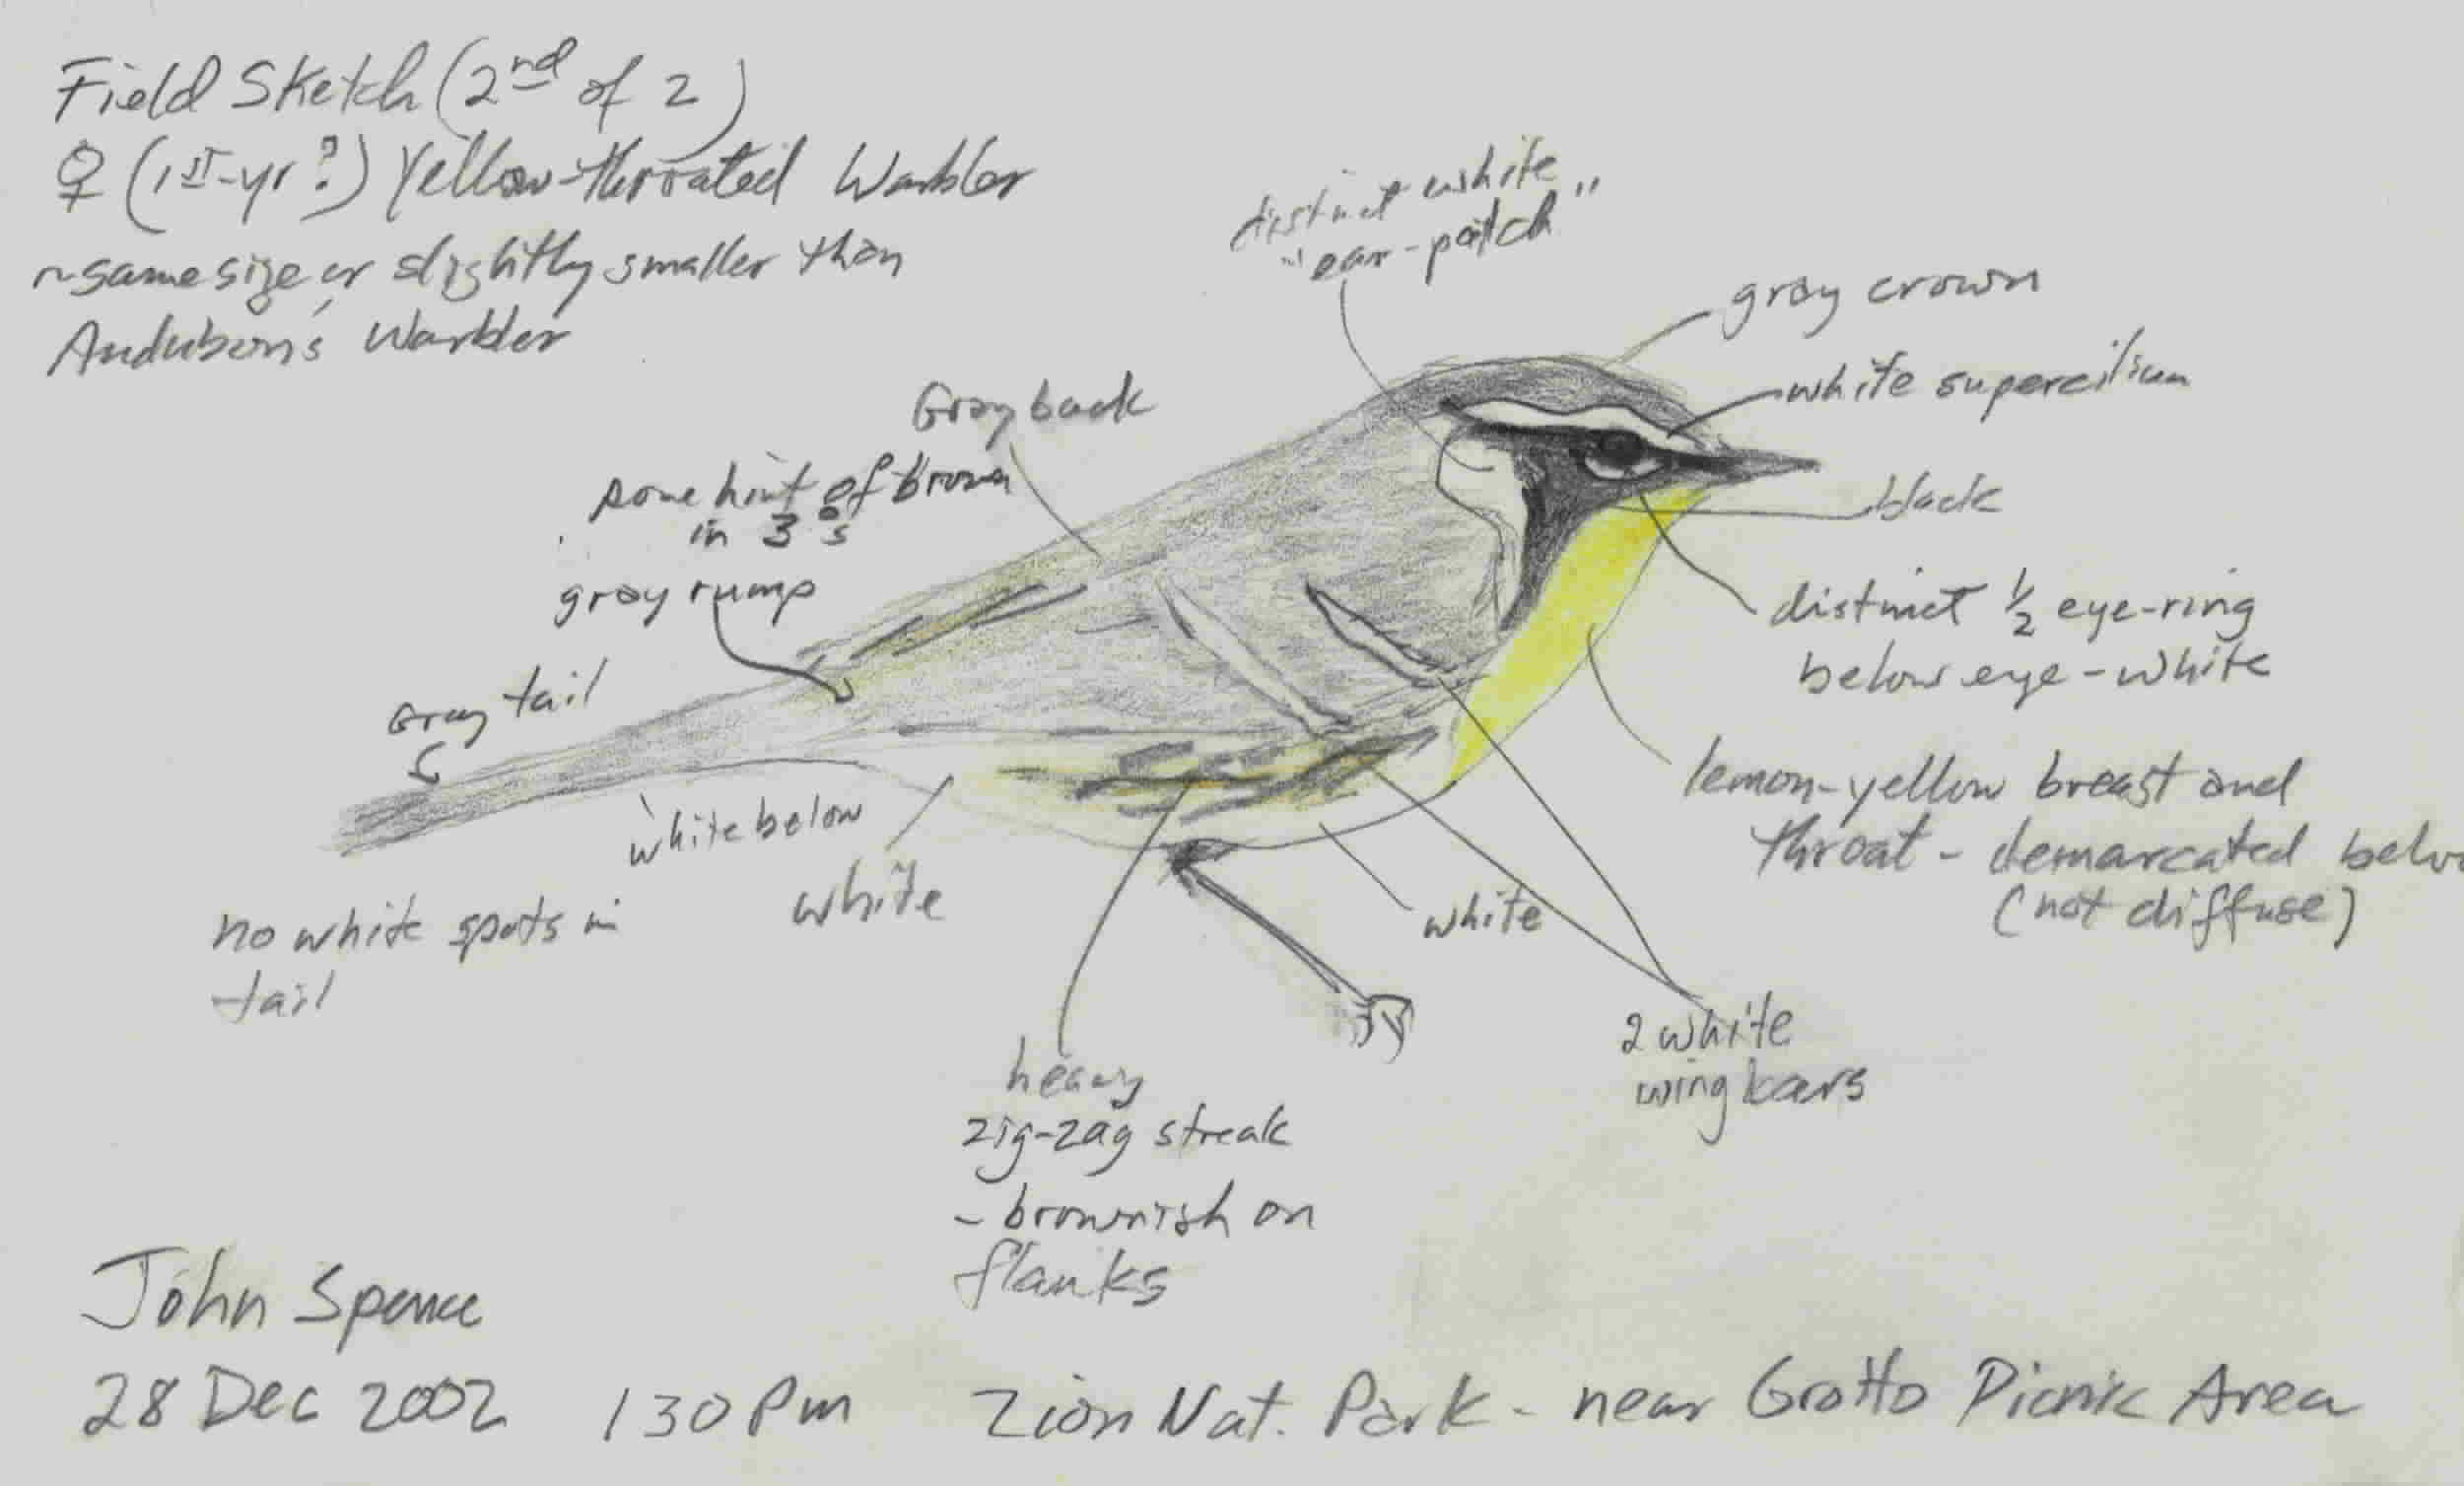 Field Sketch (2nd of 2)
♀ (1st-yr?) Yellow-throated Warbler
~same size or slightly smaller than
Audubon's Warbler
distinct white
"ear-patch"
gray crown
white supercilium
Gray back
some hint of brown
in 3°s
black
gray rump
distinct ½ eye-ring
below eye - white
Gray tail
lemon-yellow breast and
throat - demarcated below
(not diffuse)
white below
white
white
no white spots in
tail
2 white
wing bars
heavy
zig-zag streak
- brownish on
flanks
John Spence
28 Dec 2002 130 Pm Zion Nat. Park - near Grotto Picnic Area